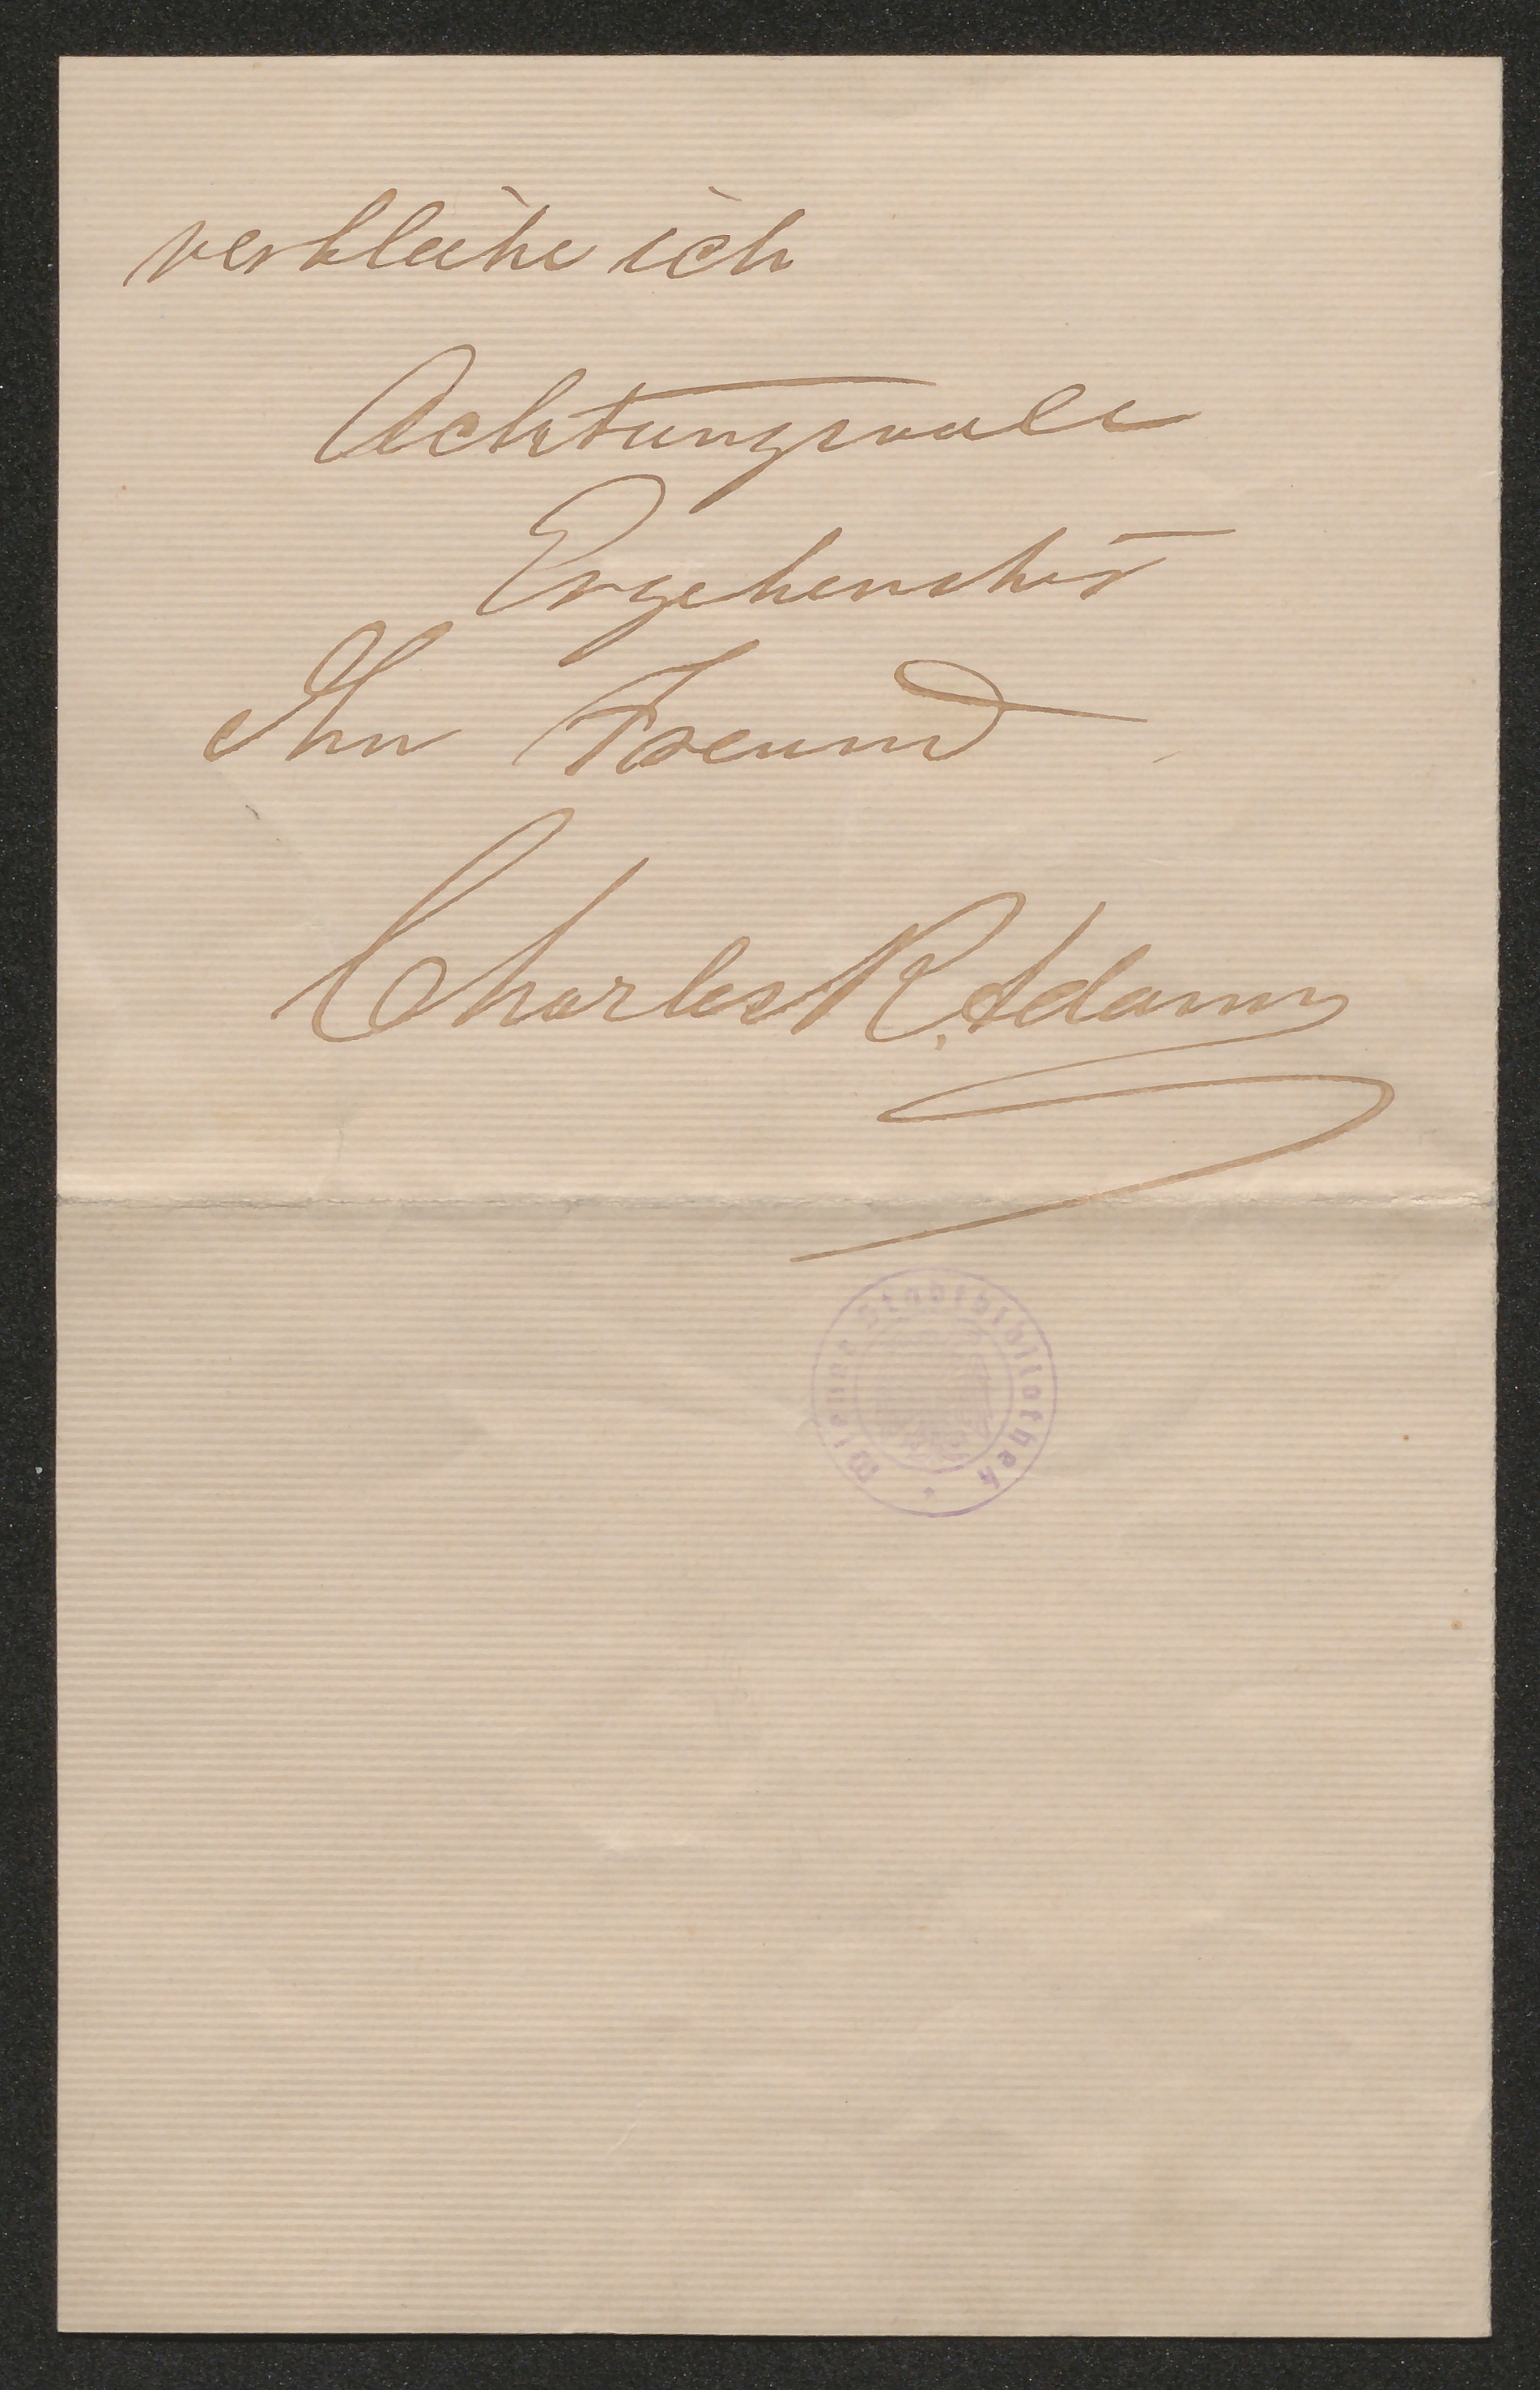 verbleibe ich
Achtungsvoll
Ergebenster
Ihr Freund
Charles R. Adams
Wiener Stadtbibliothek